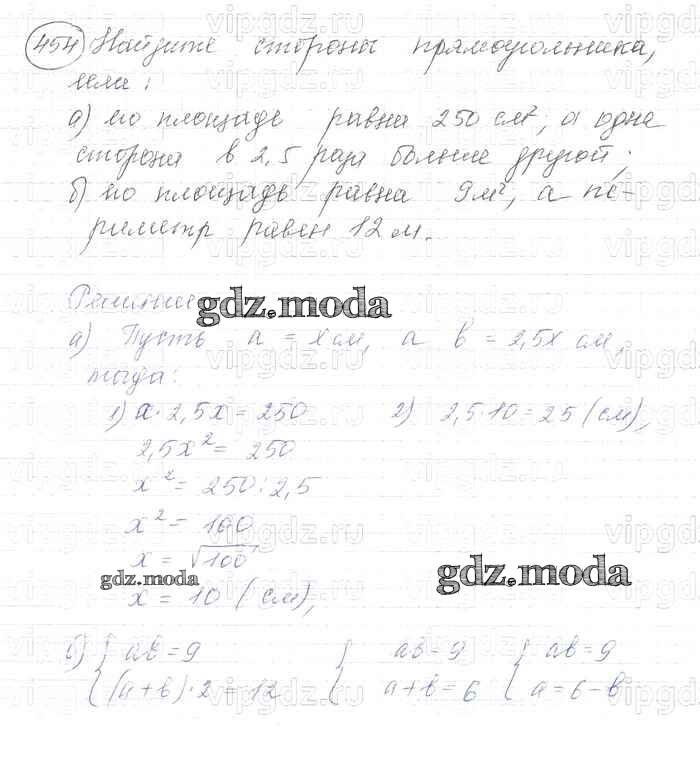 454 Найдите стороны прямоугольника,
если:
а) его площадь равна 250 см², а одна
сторона в 2,5 раза больше другой;
б) его площадь равна 9 м², а пе-
риметр равен 12 м.
Решение
gdz.moda
а) Пусть a = x см, а b = 2,5x см,
тогда:
1) x · 2,5x = 250 2) 2,5·10 = 25 (см),
2,5x² = 250
x² = 250 : 2,5
x² = 100
x = √100
gdz.moda gdz.moda
x = 10 (см),
б) { ab = 9 { ab = 9 { ab = 9
(a+b)·2 = 12 a+b = 6 a = 6-b